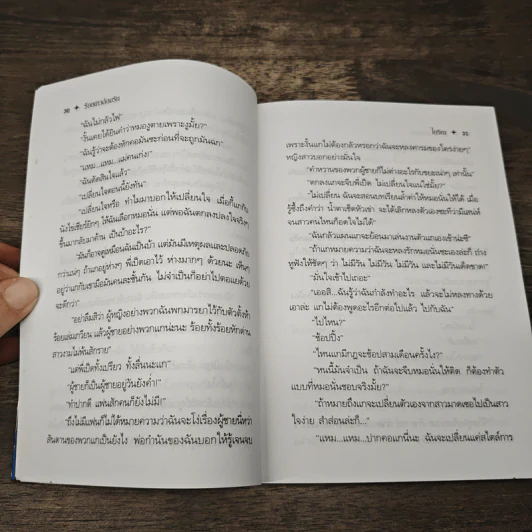 "ฉันไม่กลัวไฟ"
"งั้นเคยได้ยินคำว่าหมองูตายเพราะงูมั้ย?"
"ฉันรู้ว่าจะต้องหักคอมันซะก่อนที่จะถูกมันฉก"
"แหม...แหม...แม่คนเก่ง!"
"ฉันตัดสินใจแล้ว"
"เปลี่ยนใจตอนนี้ยังทัน"
"เปลี่ยนใจหรือ ทำไมมาบอกให้เปลี่ยนใจ เมื่อกี้แกกับ
นังโมเชียร์อีกๆ ให้ฉันเลือกหมอนั่น แต่พอฉันตกลงปลงใจจริงๆ
ขึ้นมากลับมาค้าน เป็นบ้าอะไร?"
กว่าแน่ๆ ถ้าแกอยู่ห่างๆ พี่เปิดเอาไว้ ห่างมากๆ ด้วยนะ เห็นๆ
อยู่ว่าแกกับเขามือมันคนละชั้นกัน ไม่จำเป็นก็อย่าไปตอแยด้วย
จะดีกว่า"
"อย่าลืมสิว่า ผู้หญิงอย่างพวกฉันพกมารยาไว้กับตัวตั้งห้า
ร้อยเล่มเกวียน แล้วผู้ชายอย่างพวกแกน่ะนะ ร้อยทั้งร้อยหักด่าน
สาวงามไม่พ้นสักราย"
"แต่พี่เปิดทั้งเปรี้ยว ทั้งลื่นนะแก"
"ผู้ชายก็เป็นผู้ชายอยู่วันยังค่ำ!"
"ทำปากดี แฟนสักคนก็ยังไม่มี!"
"ถึงไม่มีแฟนก็ไม่ได้หมายความว่าฉันจะโง่เรื่องผู้ชายนี่หว่า
สันดานของพวกแกเป็นยังไง พ่อกำนันของฉันบอกให้รู้เจนจบ
35
เพราะงั้นแกไม่ต้องกลัวหรอกว่าฉันจะหลงคารมของใครง่ายๆ"
หญิงสาวบอกอย่างมั่นใจ
"คำหวานของพวกผู้ชายก็ไม่ต่างอะไรกับขยะเน่าๆ เท่านั้น"
"ตกลงแกจะจีบพี่เปิด ไม่เปลี่ยนใจแน่ใช่มั้ย?"
"ไม่เปลี่ยน ฉันจะสอนบทเรียนล้ำค่าให้หมอนั่นให้ได้ เมื่อ
รู้ซึ้งถึงคำว่า น้ำตาเช็ดหัวเข่า จะได้เลิกหลงตัวเองซะทีว่ามีเสน่ห์
จนสาวคนไหนก็อดใจไม่ได้"
"ฉันกลัวแผนแกจะย้อนมาเล่นงานตัวแกเองเข้าน่ะซี"
"ถ้าแกหมายความว่าฉันจะหลงรักหมอนั่นซะเองละก็ ถ่าง
หูฟังให้ชัดๆ ว่า ไม่มีวัน ไม่มีวัน ไม่มีวัน และไม่มีวันเด็ดขาด!"
"มั่นใจเข้าไปเถอะ"
"เออสิ...ฉันรู้ว่าฉันกำลังทำอะไร แล้วจะไม่หลงทางด้วย
เอาล่ะ แกไม่ต้องพูดอะไรอีกต่อไปแล้ว ไปกับฉัน"
"ไปไหน?"
"ช้อปปิ้ง"
"ไหนแกมีกฎจะช้อปสามเดือนครั้งไง?"
"หนนี้มันจำเป็น ถ้าฉันจะจีบหมอนั่นให้ติด ก็ต้องทำตัว
แบบที่หมอนั่นชอบจริงมั้ย?"
"ถ้าหมายถึงแกจะเปลี่ยนตัวเองจากสาวมาดเซอไปเป็นสาว
ใจง่าย ล่ำสอนล่ะก็..."
"แหม...แหม...ปากคอแกนี่นะ ฉันจะเปลี่ยนแค่สไตล์การ